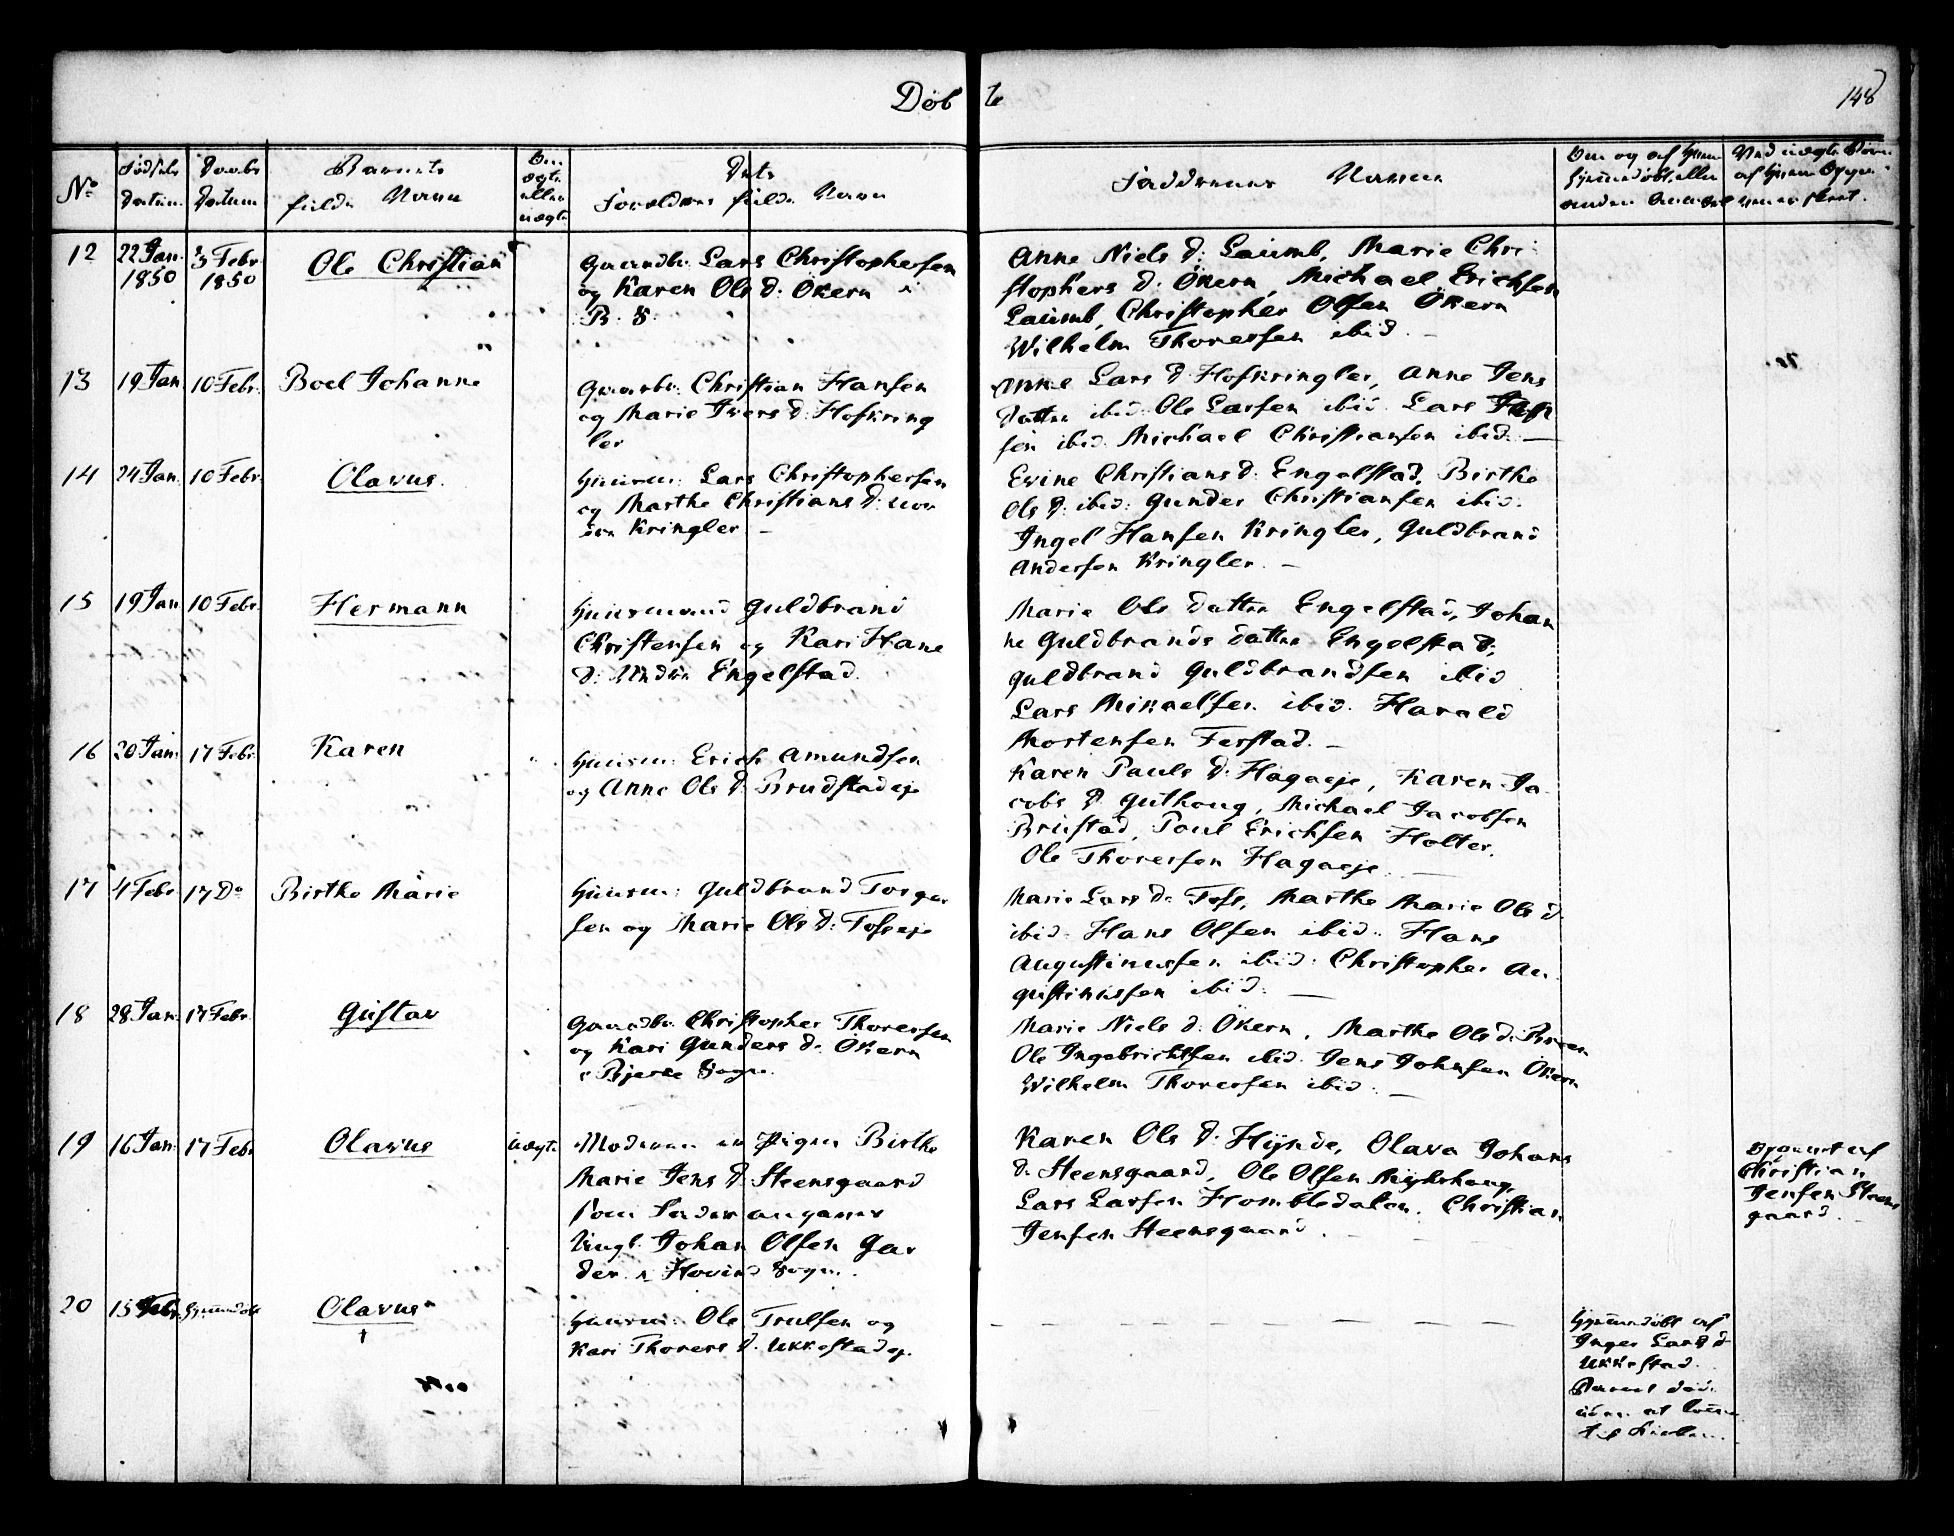 Døbte
148
No
Fødsels Datum
Daabs Datum
Barnets fulde Navn
Om ægte eller uægte
Dets Forældres fulde Navn
Faddernes Navne
Om og af hvem hjemmedøbt, eller anden
Ved uægte Børn af hvem
12 22 Jan. 1850 3 Febr. 1850 Ole Christian
Gaardbr. Lars Christophersen
og Karen Ols D. Økern i
B. S.
Anne Niels D. Laumb, Marie Chri-
stophers D. Økern, Michael Erichsen
Laumb, Christopher Olsen Økern
Wilhelm Thoresen ibid.
13 19 Jan 10 Febr. Boel Johanne
Gaardbr. Christian Hansen
og Marie Ivers D. Hofkring
ler
Anne Lars D. Hofkringler, Anne Jens
Datter ibid. Ole Larsen ibid. Lars
sen ibid. Michael Christiansen ibid. —
14 24 Jan. 10 Febr. Olavus.
Huusm: Lars Christophersen
og Marthe Christians D: nor
dre Kringler —
Evine Christians D. Engelstad, Birthe
Ols D. ibid. Gunder Christiansen ibid.
Ingel Hansen Kringler, Guldbrand
Andersen Kringler. —
15 19 Jan 10 Febr. Hermann
Huusmand Guldbrand
Christensen og Kari Hane
D: Engelstad.
Marie Ols Datter Engelstad, Johan
ne Guldbrands Datter Engelstad,
Guldbrand Guldbrandsen ibid
Lars Mikaelsen ibid. Harald
Mortensen Ferstad. —
16 20 Jan. 17 Febr. Karen
Huusm: Erich Amundsen
og Anne Ols D. Brudstadeje
Karen Pauls D. Hagaeje, Karen Ja
cobs D. Guthoug, Michael Jacobsen
Brustad, Poul Erichsen Holter.
Ole Thoresen Hagaeje. —
17 4 Febr 17 Do Birthe Marie
Huusm: Guldbrand Torger
sen og Marie Ols D: Foss eje
Marie Lars D. Foss, Marthe Marie Ols D
ibid. Hans Olsen ibid. Hans
Augustinussen ibid. Christopher Au
gustinussen ibid. —
18 28 Jan. 17 Febr. Gustav
Gaardbr. Christopher Thoresen
og Kari Gunders D. Økern
i Bjerke Sogn.
Marie Niels D. Økern, Marthe Ols D.
Ole Ingebrichtsen ibid. Jens Johnsen Økern
Wilhelm Thoresen ibid. —
19 16 Jan: 17 Febr. Olavus uægte
Moderen er Pigen Birthe
Marie Jens D. Steensgaard
som Fader angives
Ungk. Johan Olsen Gar
der i Hovind Sogn.
Karen Ols D. Hynde, Olava Johans
D. Steensgaard, Ole Olsen Myhrhaug,
Lars Larsen Hombledalen. Christian
Jensen Steensgaard. —
Opgivet af
Christian
Jensen Steens
gaard. —
20 15 Febr. Hjemmedøbt Olavus
†
Huusm: Ole Trulsen og
Kari Thorers D. Ukkestadej.
Hjemmedøbt af
Inger Lars D
Ukkestad.
Barnet død
uden at
til Kirken.